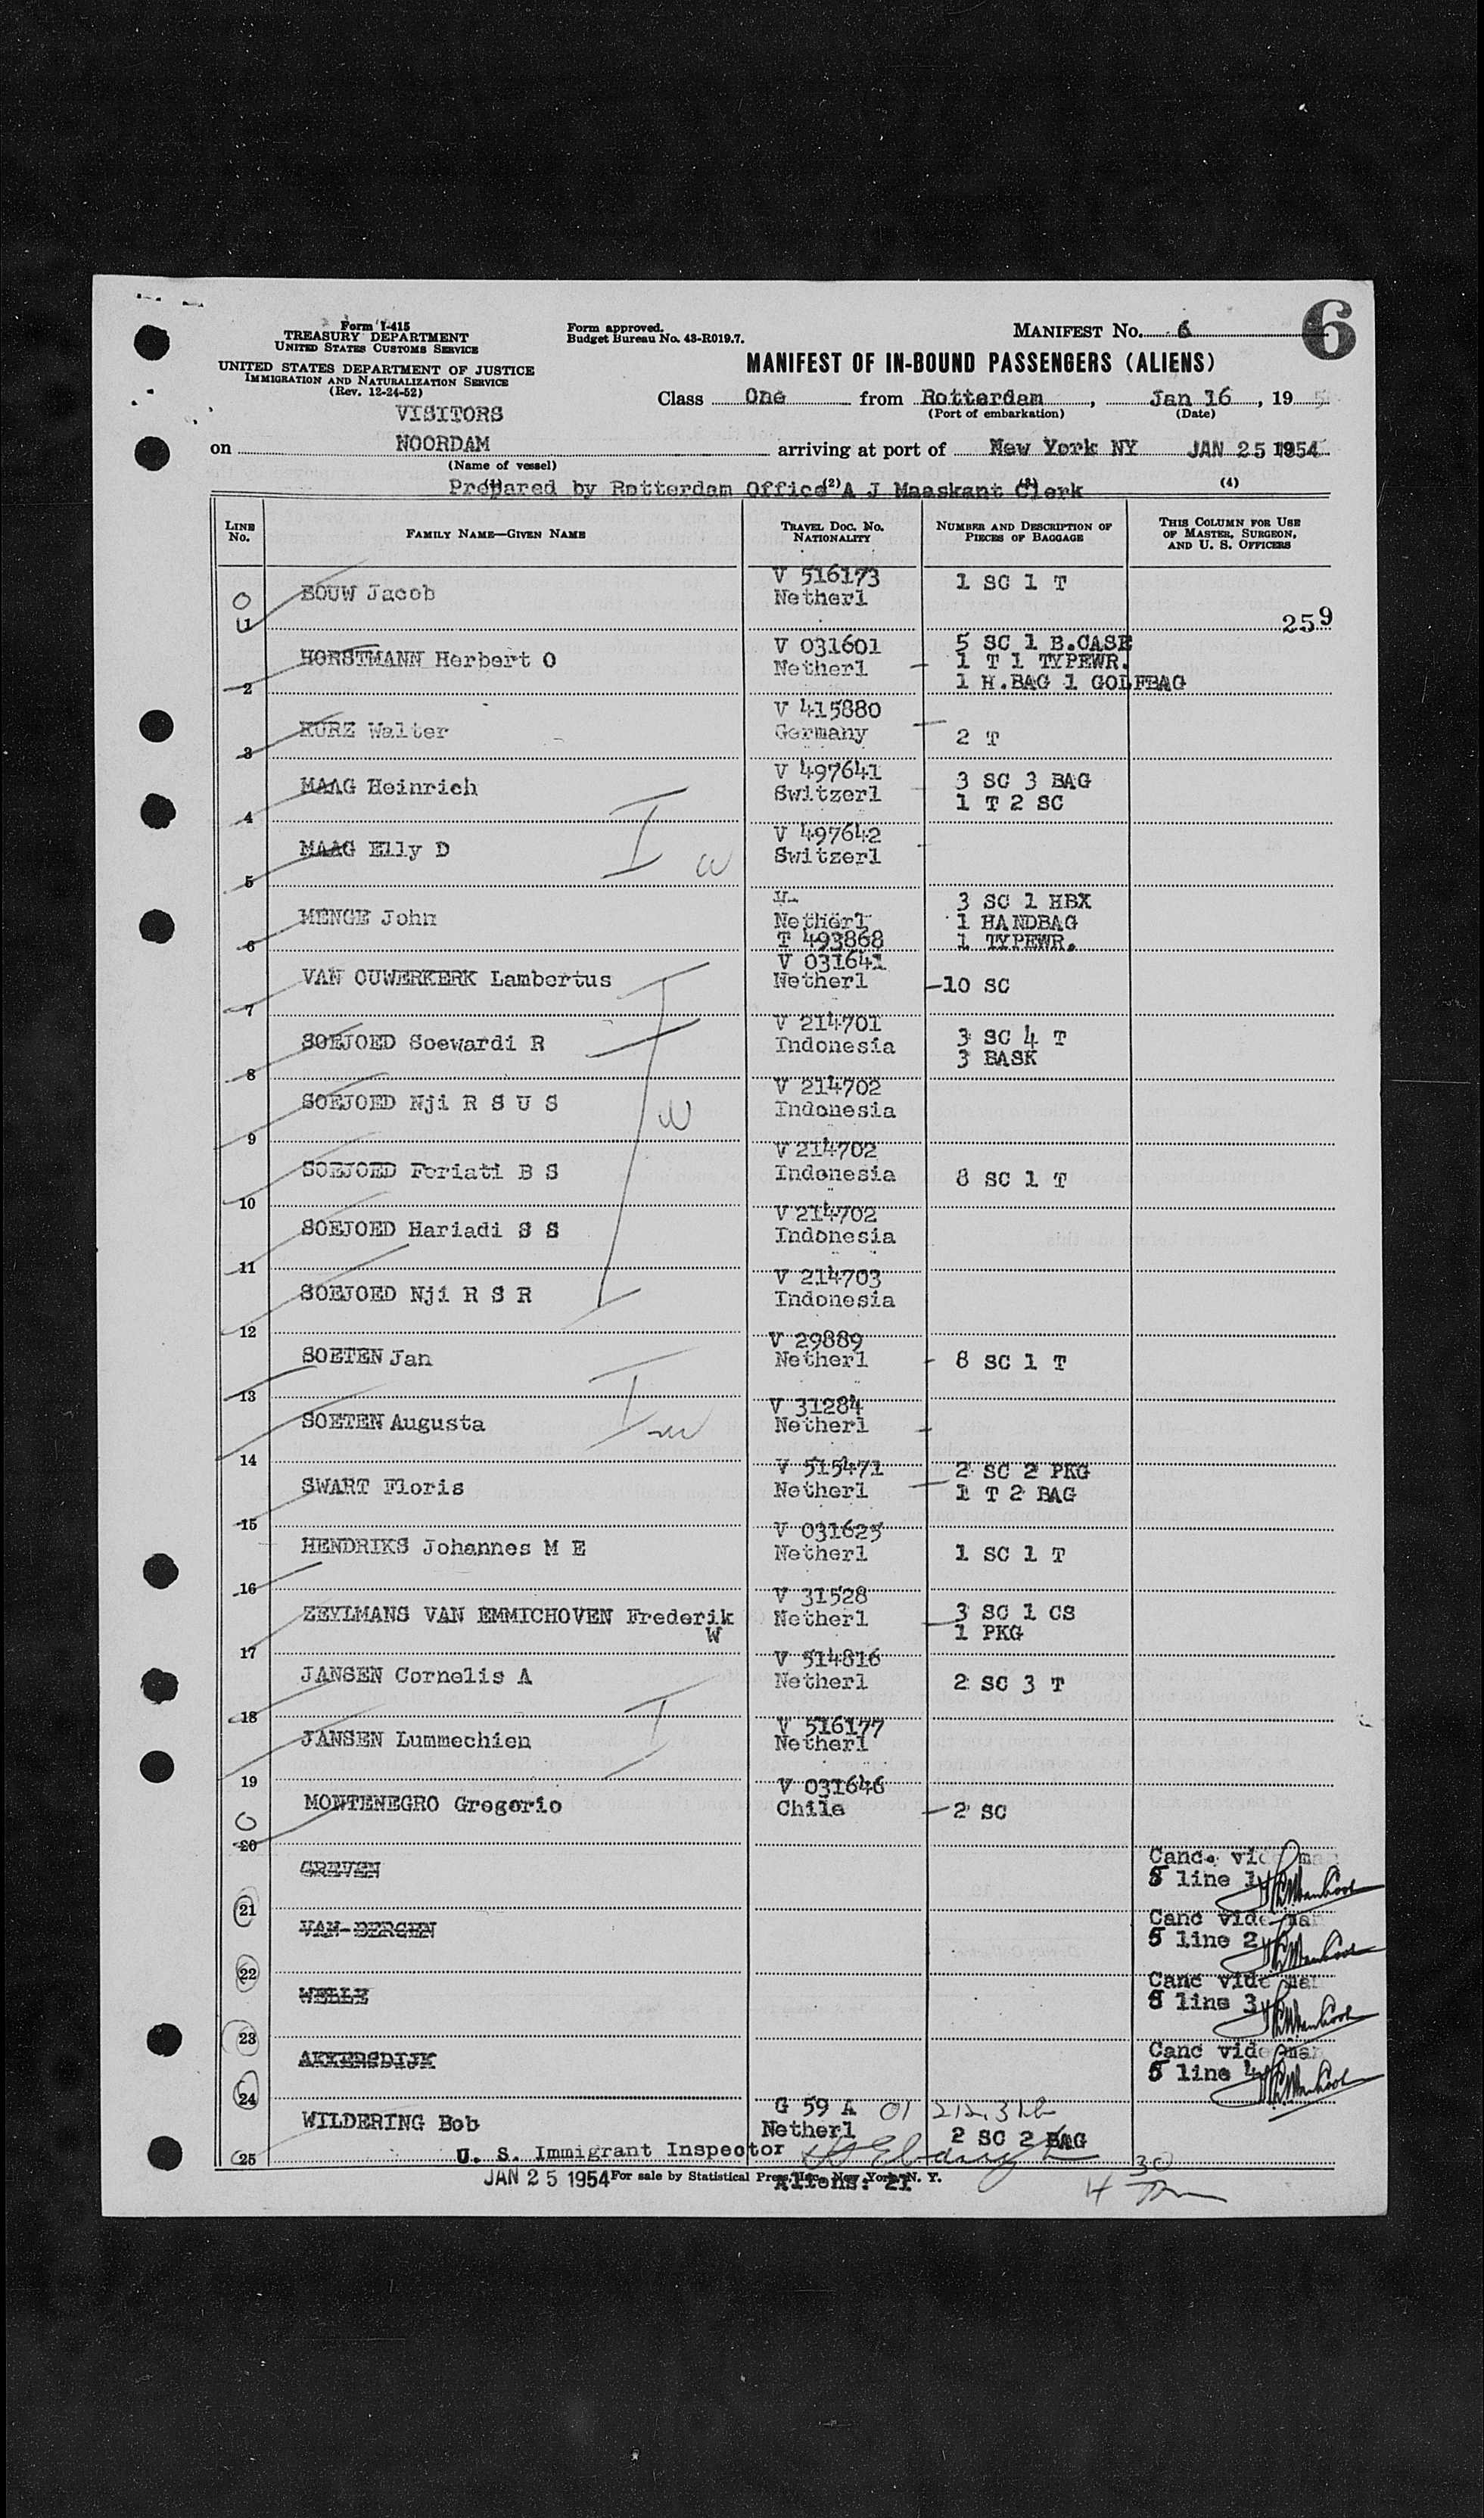 6
Form I-415
TREASURY DEPARTMENT
UNITED STATES CUSTOMS SERVICE
UNITED STATES DEPARTMENT OF JUSTICE
IMMIGRATION AND NATURALIZATION SERVICE
(Rev. 12-24-52)
Form approved.
Budget Bureau No. 43-R019.7.
MANIFEST No. 6
MANIFEST OF IN-BOUND PASSENGERS (ALIENS)
Class One from Rotterdam, Jan 16, 19
(Port of embarkation) (Date)
VISITORS
on NOORDAM arriving at port of New York NY JAN 25 1954
(Name of vessel)
Prepared by Rotterdam Office A J Maaskant Clerk
(1) (2) (3) (4)
LINE No. FAMILY NAME—GIVEN NAME TRAVEL DOC. No. NATIONALITY NUMBER AND DESCRIPTION OF PIECES OF BAGGAGE THIS COLUMN FOR USE OF MASTER, SURGEON, AND U. S. OFFICERS
1 BOUW Jacob V 516173 Netherl 1 SC 1 T
259
2 HORSTMANN Herbert O V 031601 Netherl 5 SC 1 B.CASE
1 T 1 TYPEWR.
1 H.BAG 1 GOLFBAG
3 KURZ Walter V 415880 Germany 2 T
4 MAAG Heinrich V 497641 Switzerl 3 SC 3 BAG
1 T 2 SC
5 MAAG Elly D V 497642 Switzerl
6 MENGE John Netherl T 493868 3 SC 1 HBX
1 HANDBAG
1 TYPEWR.
7 VAN OUWERKERK Lambertus V 031641 Netherl 10 SC
8 SOEJOED Soewardi R V 214701 Indonesia 3 SC 4 T
3 BASK
9 SOEJOED Nji R S U S V 214702 Indonesia
10 SOEJOED Foriati B S V 214702 Indonesia 8 SC 1 T
11 SOEJOED Hariadi S S V 214702 Indonesia
12 SOEJOED Nji R S R V 214703 Indonesia
13 SOETEN Jan V 29889 Netherl 8 SC 1 T
14 SOETEN Augusta V 31284 Netherl
15 SWART Floris V 515471 Netherl 2 SC 2 PKG
1 T 2 BAG
16 HENDRIKS Johannes M E V 031625 Netherl 1 SC 1 T
17 ZEYLMANS VAN EMMICHOVEN Frederik W V 31528 Netherl 3 SC 1 CS
1 PKG
18 JANSEN Cornelis A V 514816 Netherl 2 SC 3 T
19 JANSEN Lummechien V 516177 Netherl
20 MONTENEGRO Gregorio V 031646 Chile 2 SC
21 GREVEN Canc. vide man
5 line 1
22 VAN BERGEN Canc vide man
5 line 2
23 WELLE Canc vide man
5 line 3
24 AKKERSDIJK Canc vide man
5 line 4
25 WILDERING Bob G 59 A Netherl 2 SC 2 BAG
U. S. Immigrant Inspector
JAN 25 1954 For sale by Statistical Press, Inc., New York, N. Y.
Aliens: 21